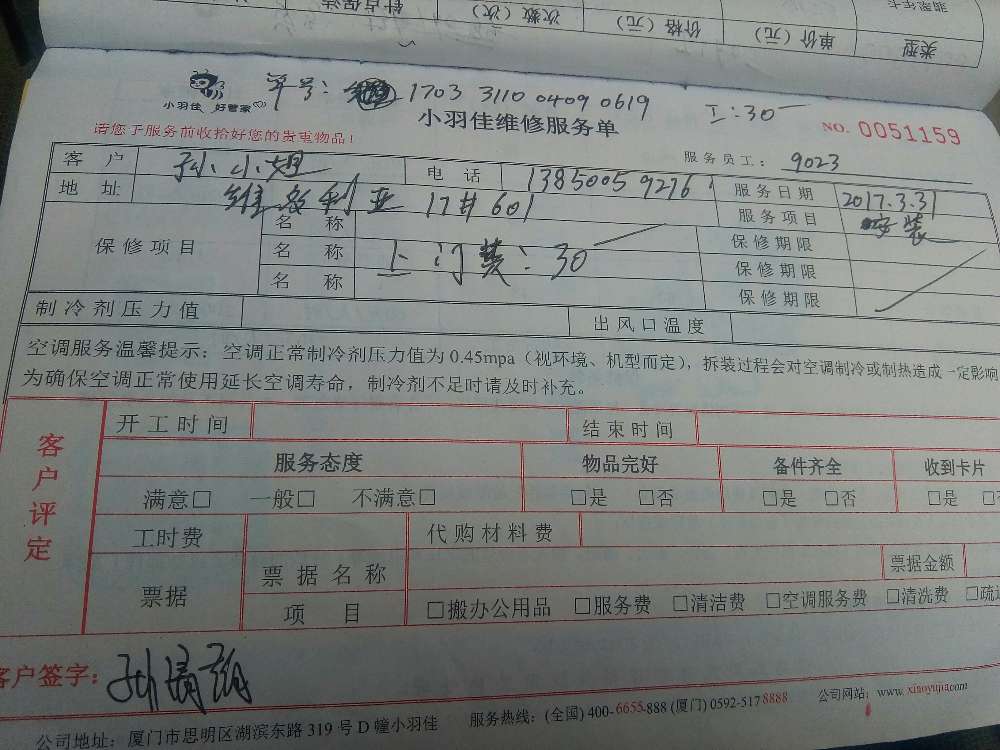 类型 单价（元） 价格（元） 次数（次） 针点保洁
小羽佳 好管家
单号： 1703 3110 0409 0619
工:30
小羽佳维修服务单
NO. 0051159
请您于服务前收拾好您的贵重物品！
服务员工： 9023
客 户 孙小姐 电 话 13850059276 服务日期 2017.3.31
地 址 维多利亚 17# 601 服务项目 安装
保修项目
名 称 保修期限
名 称 上门费：30 保修期限
名 称 保修期限
制冷剂压力值 出风口温度
空调服务温馨提示：空调正常制冷剂压力值为 0.45mpa（视环境、机型而定），拆装过程会对空调制冷或制热造成一定影响
为确保空调正常使用延长空调寿命，制冷剂不足时请及时补充。
客户评定
开工时间 结束时间
服务态度 物品完好 备件齐全 收到卡片
满意□ 一般□ 不满意□ □是 □否 □是 □否 □是
工时费 代购材料费
票据
票据名称 票据金额
项 目 □搬办公用品 □服务费 □清洁费 □空调服务费 □清洗费 □疏
客户签字：
公司地址：厦门市思明区湖滨东路 319 号 D 幢小羽佳 服务热线：(全国) 400-6655-888 (厦门) 0592-517 8888 公司网站：www.xiaoyujia.com